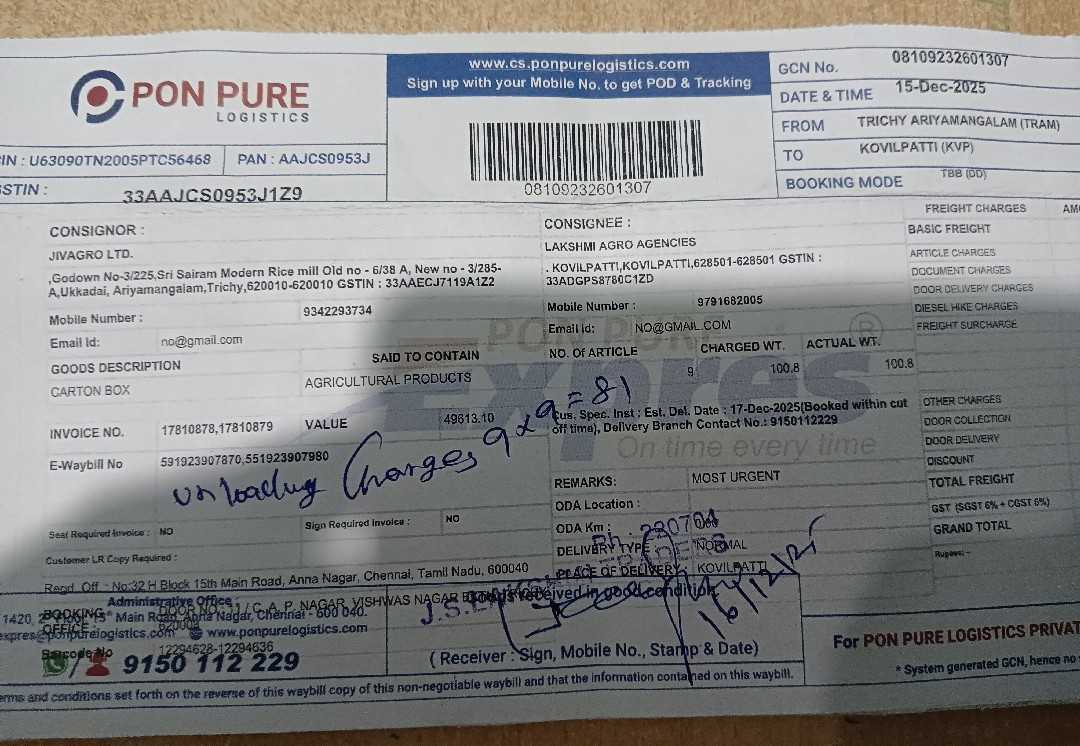 PON PURE
LOGISTICS
www.cs.ponpurelogistics.com
Sign up with your Mobile No. to get POD & Tracking
08109232601307
GCN No. 08109232601307
DATE & TIME 15-Dec-2025
FROM TRICHY ARIYAMANGALAM (TRAM)
TO KOVILPATTI (KVP)
BOOKING MODE TBB (DD)
IN : U63090TN2005PTC56468 PAN : AAJCS0953J
STIN : 33AAJCS0953J1Z9
CONSIGNOR :
JIVAGRO LTD.
,Godown No-3/225,Sri Sairam Modern Rice mill Old no - 6/38 A, New no - 3/285-
A,Ukkadai, Ariyamangalam,Trichy,620010-620010 GSTIN : 33AAECJ7119A1Z2
Mobile Number : 9342293734
Email Id: no@gmail.com
CONSIGNEE :
LAKSHMI AGRO AGENCIES
. KOVILPATTI,KOVILPATTI,628501-628501 GSTIN :
33ADGPS8780C1ZD
Mobile Number : 9791682005
Email Id: NO@GMAIL.COM
GOODS DESCRIPTION SAID TO CONTAIN
CARTON BOX AGRICULTURAL PRODUCTS
NO. Of ARTICLE CHARGED WT. ACTUAL WT.
9 100.8 100.8
INVOICE NO. 17810878,17810879 VALUE 49613.10
E-Waybill No 591923907870,551923907980
Cus. Spec. Inst : Est. Del. Date : 17-Dec-2025(Booked within cut
off time), Delivery Branch Contact No.: 9150112229
PON PURE
Expres ®
On time every time
unloading Charges 9x9=81
REMARKS: MOST URGENT
ODA Location :
ODA Km :
DELIVERY TYPE NORMAL
PLACE OF DELIVERY KOVILPATTI
Seal Required Invoice : NO Sign Required Invoice : NO
Customer LR Copy Required :
FREIGHT CHARGES AM
BASIC FREIGHT
ARTICLE CHARGES
DOCUMENT CHARGES
DOOR DELIVERY CHARGES
DIESEL HIKE CHARGES
FREIGHT SURCHARGE
OTHER CHARGES
DOOR COLLECTION
DOOR DELIVERY
DISCOUNT
TOTAL FREIGHT
GST (SGST 6% + CGST 6%)
GRAND TOTAL
Rupees: -
Regd. Off - No:32 H Block 15th Main Road, Anna Nagar, Chennai, Tamil Nadu, 600040
Administrative Office :
Main Road, Anna Nagar, Chennai - 600 040.
expres@ponpurelogistics.com www.ponpurelogistics.com
BOOKING OFFICE
Barcode No 12294628-12294636
9150 112 229
Goods received in good condition
16/12/25
( Receiver : Sign, Mobile No., Stamp & Date)
For PON PURE LOGISTICS PRIVAT
* System generated GCN, hence no
erms and conditions set forth on the reverse of this waybill copy of this non-negotiable waybill and that the information contained on this waybill.